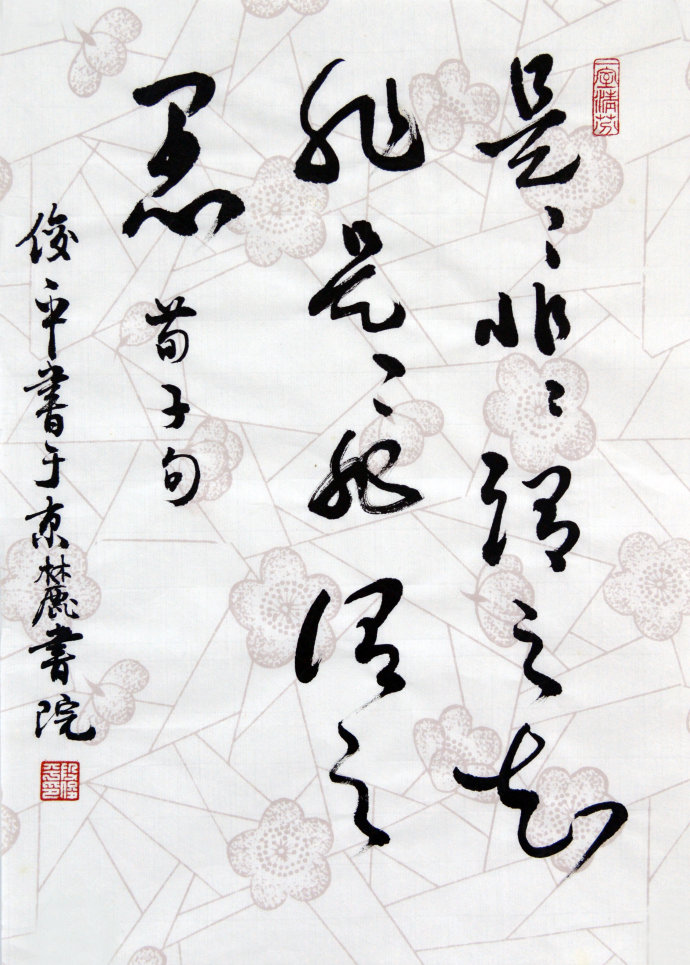 是〻非〻谓之知
非是〻非谓之
愚
荀子句
俊平书于京麓书院